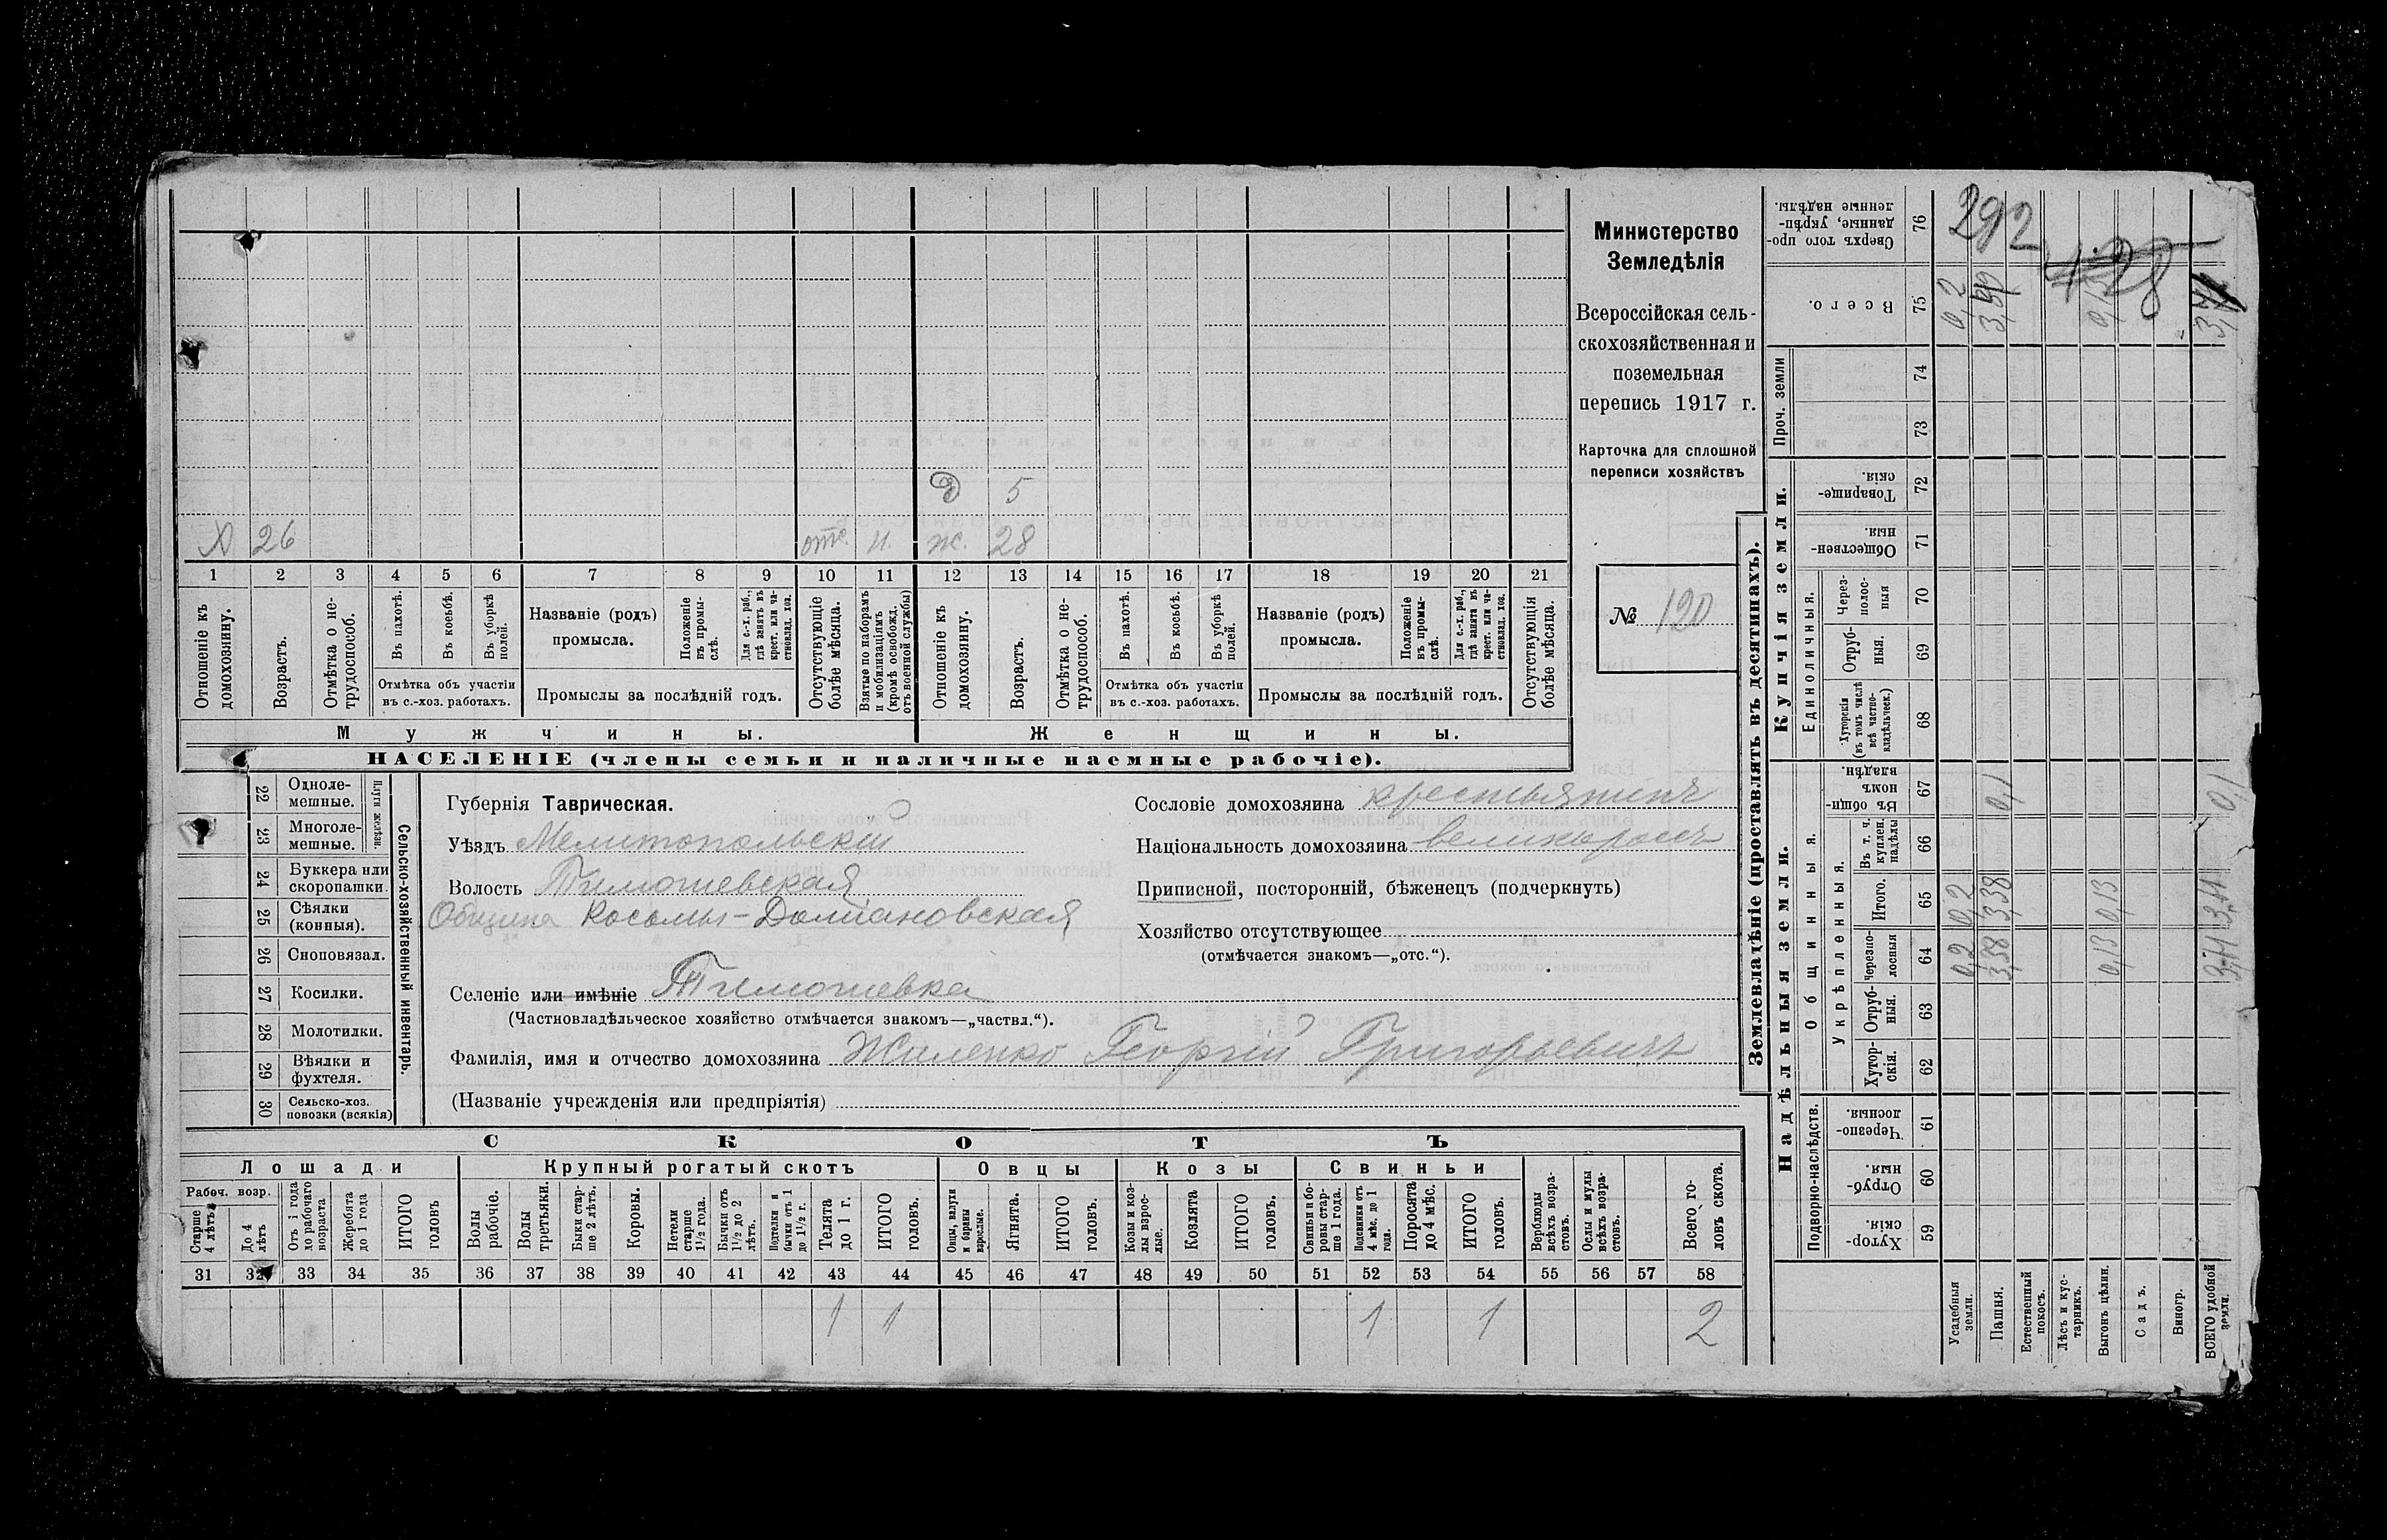 Х 26 отс. н. ж. 28
Д 5
1 2 3 4 5 6 7 8 9 10 11 12 13 14 15 16 17 18 19 20 21
Отношеніе къ домохозяину.
Возрастъ.
Отмѣтка о не-трудоспособ.
Въ пахотѣ.
Въ косьбѣ.
Въ уборкѣ полей.
Отмѣтка объ участіи въ с.-хоз. работахъ.
Названіе (родъ) промысла.
Положеніе въ промы-слѣ.
Для с.-х. раб., гдѣ занятъ въ крест. или ча-стновлад. хоз.
Промыслы за послѣдній годъ.
Отсутствующіе болѣе мѣсяца.
Взятые по наборамъ и мобилизаціямъ (кромѣ освобожд. отъ военной службы)
Отношеніе къ домохозяину.
Возрастъ.
Отмѣтка о не-трудоспособ.
Въ пахотѣ.
Въ косьбѣ.
Въ уборкѣ полей.
Отмѣтка объ участіи въ с.-хоз. работахъ.
Названіе (родъ) промысла.
Положеніе въ промы-слѣ.
Для с.-х. раб., гдѣ занята въ крест. или ча-стновлад. хоз.
Промыслы за послѣдній годъ.
Отсутствующія болѣе мѣсяца.
Мужчины.
Женщины.
НАСЕЛЕНІЕ (члены семьи и наличные наемные рабочіе).
Министерство
Земледѣлія
Всероссійская сель-
скохозяйственная и
поземельная
перепись 1917 г.
Карточка для сплошной
переписи хозяйствъ
№ 120
22 Одноле-мешные.
23 Многоле-мешные.
Плуги желѣзн.
24 Буккера или скоропашки.
25 Сѣялки (конныя).
26 Сноповязал.
27 Косилки.
28 Молотилки.
29 Вѣялки и фухтеля.
30 Сельско-хоз. повозки (всякія)
Сельско-хозяйственный инвентарь.
Губернія Таврическая.
Уѣздъ Мелитопольскій
Волость Тимошевская
Община Косьмы-Домиановская
Селеніе или имѣніе Тимошевка
(Частновладѣльческое хозяйство отмѣчается знакомъ—„частвл.“).
Фамилія, имя и отчество домохозяина Жиленко Георгій Григорьевичъ
(Названіе учрежденія или предпріятія)
Сословіе домохозяина крестьянинъ
Національность домохозяина великороссъ
Приписной, посторонній, бѣженецъ (подчеркнуть)
Хозяйство отсутствующее
(отмѣчается знакомъ—„отс.“).
СКОТЪ
Лошади
Крупный рогатый скотъ
Овцы
Козы
Свиньи
Рабоч. возр.
Старше 4 лѣтъ
До 4 лѣтъ
Отъ 1 года до рабочаго возраста
Жеребята до 1 года
ИТОГО головъ
Волы рабочіе.
Волы третьяки.
Быки стар-ше 2 лѣтъ.
Коровы.
Нетели старше 1½ года.
Бычки отъ 1½ до 2 лѣтъ.
Подтелки и бычки отъ 1 до 1½ г.
Телята до 1 г.
ИТОГО головъ.
Овцы, валухи и бараны взрослые.
Ягнята.
ИТОГО головъ.
Козы и коз-лы взрос-лые.
Козлята
ИТОГО головъ.
Свиньи и бо-ровы стар-ше 1 года.
Подсвинки отъ 4 мѣс. до 1 года.
Поросята до 4 мѣс.
ИТОГО головъ.
Верблюды всѣхъ возра-стовъ.
Ослы и мулы всѣхъ возра-стовъ.
Всего го-ловъ скота.
31 32 33 34 35 36 37 38 39 40 41 42 43 44 45 46 47 48 49 50 51 52 53 54 55 56 57 58
1 1 1 1 2
Землевладѣніе (проставлять въ десятинахъ).
Надѣльныя земли.
Купчія земли.
Проч. земли
Подворно-наслѣдств.
Общинныя.
Укрѣпленныя.
Единоличныя.
Сверхъ того про-данные, укрѣп-ленные надѣлы. 76
Всего. 75
74
73
Товарище-скія. 72
Обществен-ныя. 71
Через-полос-ныя 70
Отруб-ныя. 69
Хуторскія (въ томъ числѣ всѣ частно-владѣльческ.) 68
Въ общин-номъ владѣн. 67
Въ т. ч. куплен. надѣлы 66
Итого. 65
Черезпо-лосныя 64
Отруб-ныя. 63
Хутор-скія. 62
Черезпо-лосныя. 61
Отруб-ныя. 60
Хутор-скія. 59
Усадебныя земли. 0,2 0,2 0,2
Пашня. 3,38 3,38 0,1
Естественный покосъ.
Лѣсъ и кус-тарникъ.
Выгонъ цѣлин. 0,13 0,13
Садъ.
Виногр.
ВСЕГО удобной земли. 3,71 3,71 0,1
292